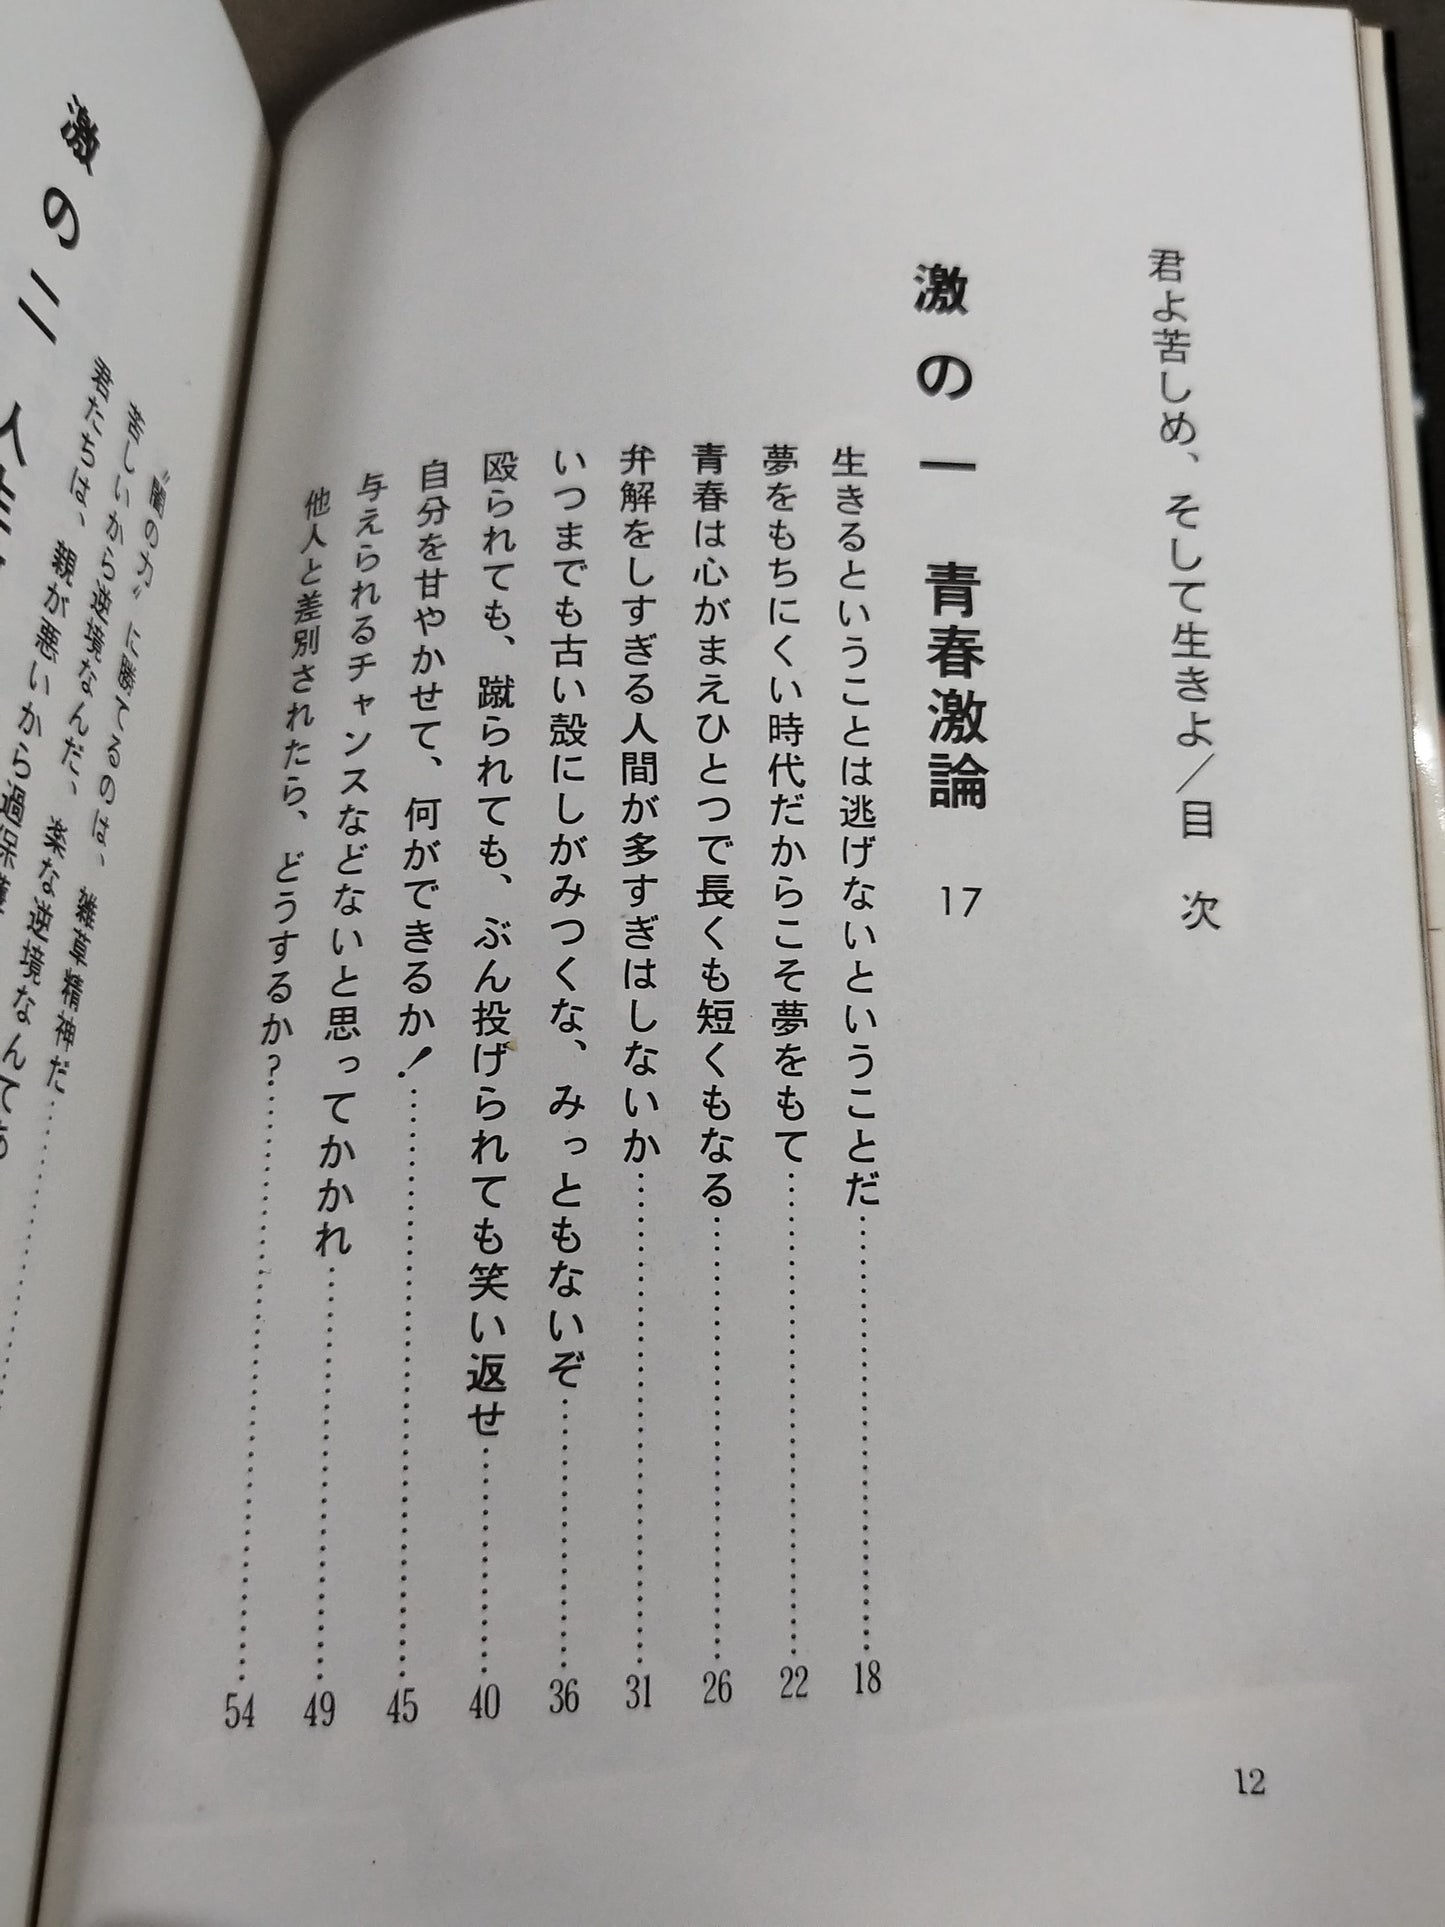 君よ苦しめ、そして生きよ／目　次
激の一　青春激論　17
生きるということは逃げないということだ……………18
夢をもちにくい時代だからこそ夢をもて……………22
青春は心がまえひとつで長くも短くもなる……………26
弁解をしすぎる人間が多すぎはしないか……………31
いつまでも古い殻にしがみつくな、みっともないぞ……………36
殴られても、蹴られても、ぶん投げられても笑い返せ……………40
自分を甘やかせて、何ができるか！……………45
与えられるチャンスなどないと思ってかかれ……………49
他人と差別されたら、どうするか？……………54
12
激の二　人生
〝闇の力〟に勝てるのは、雑草精神だ……………
苦しいから逆境なんだ、楽な逆境なんて
君たちは、親が悪いから過保護